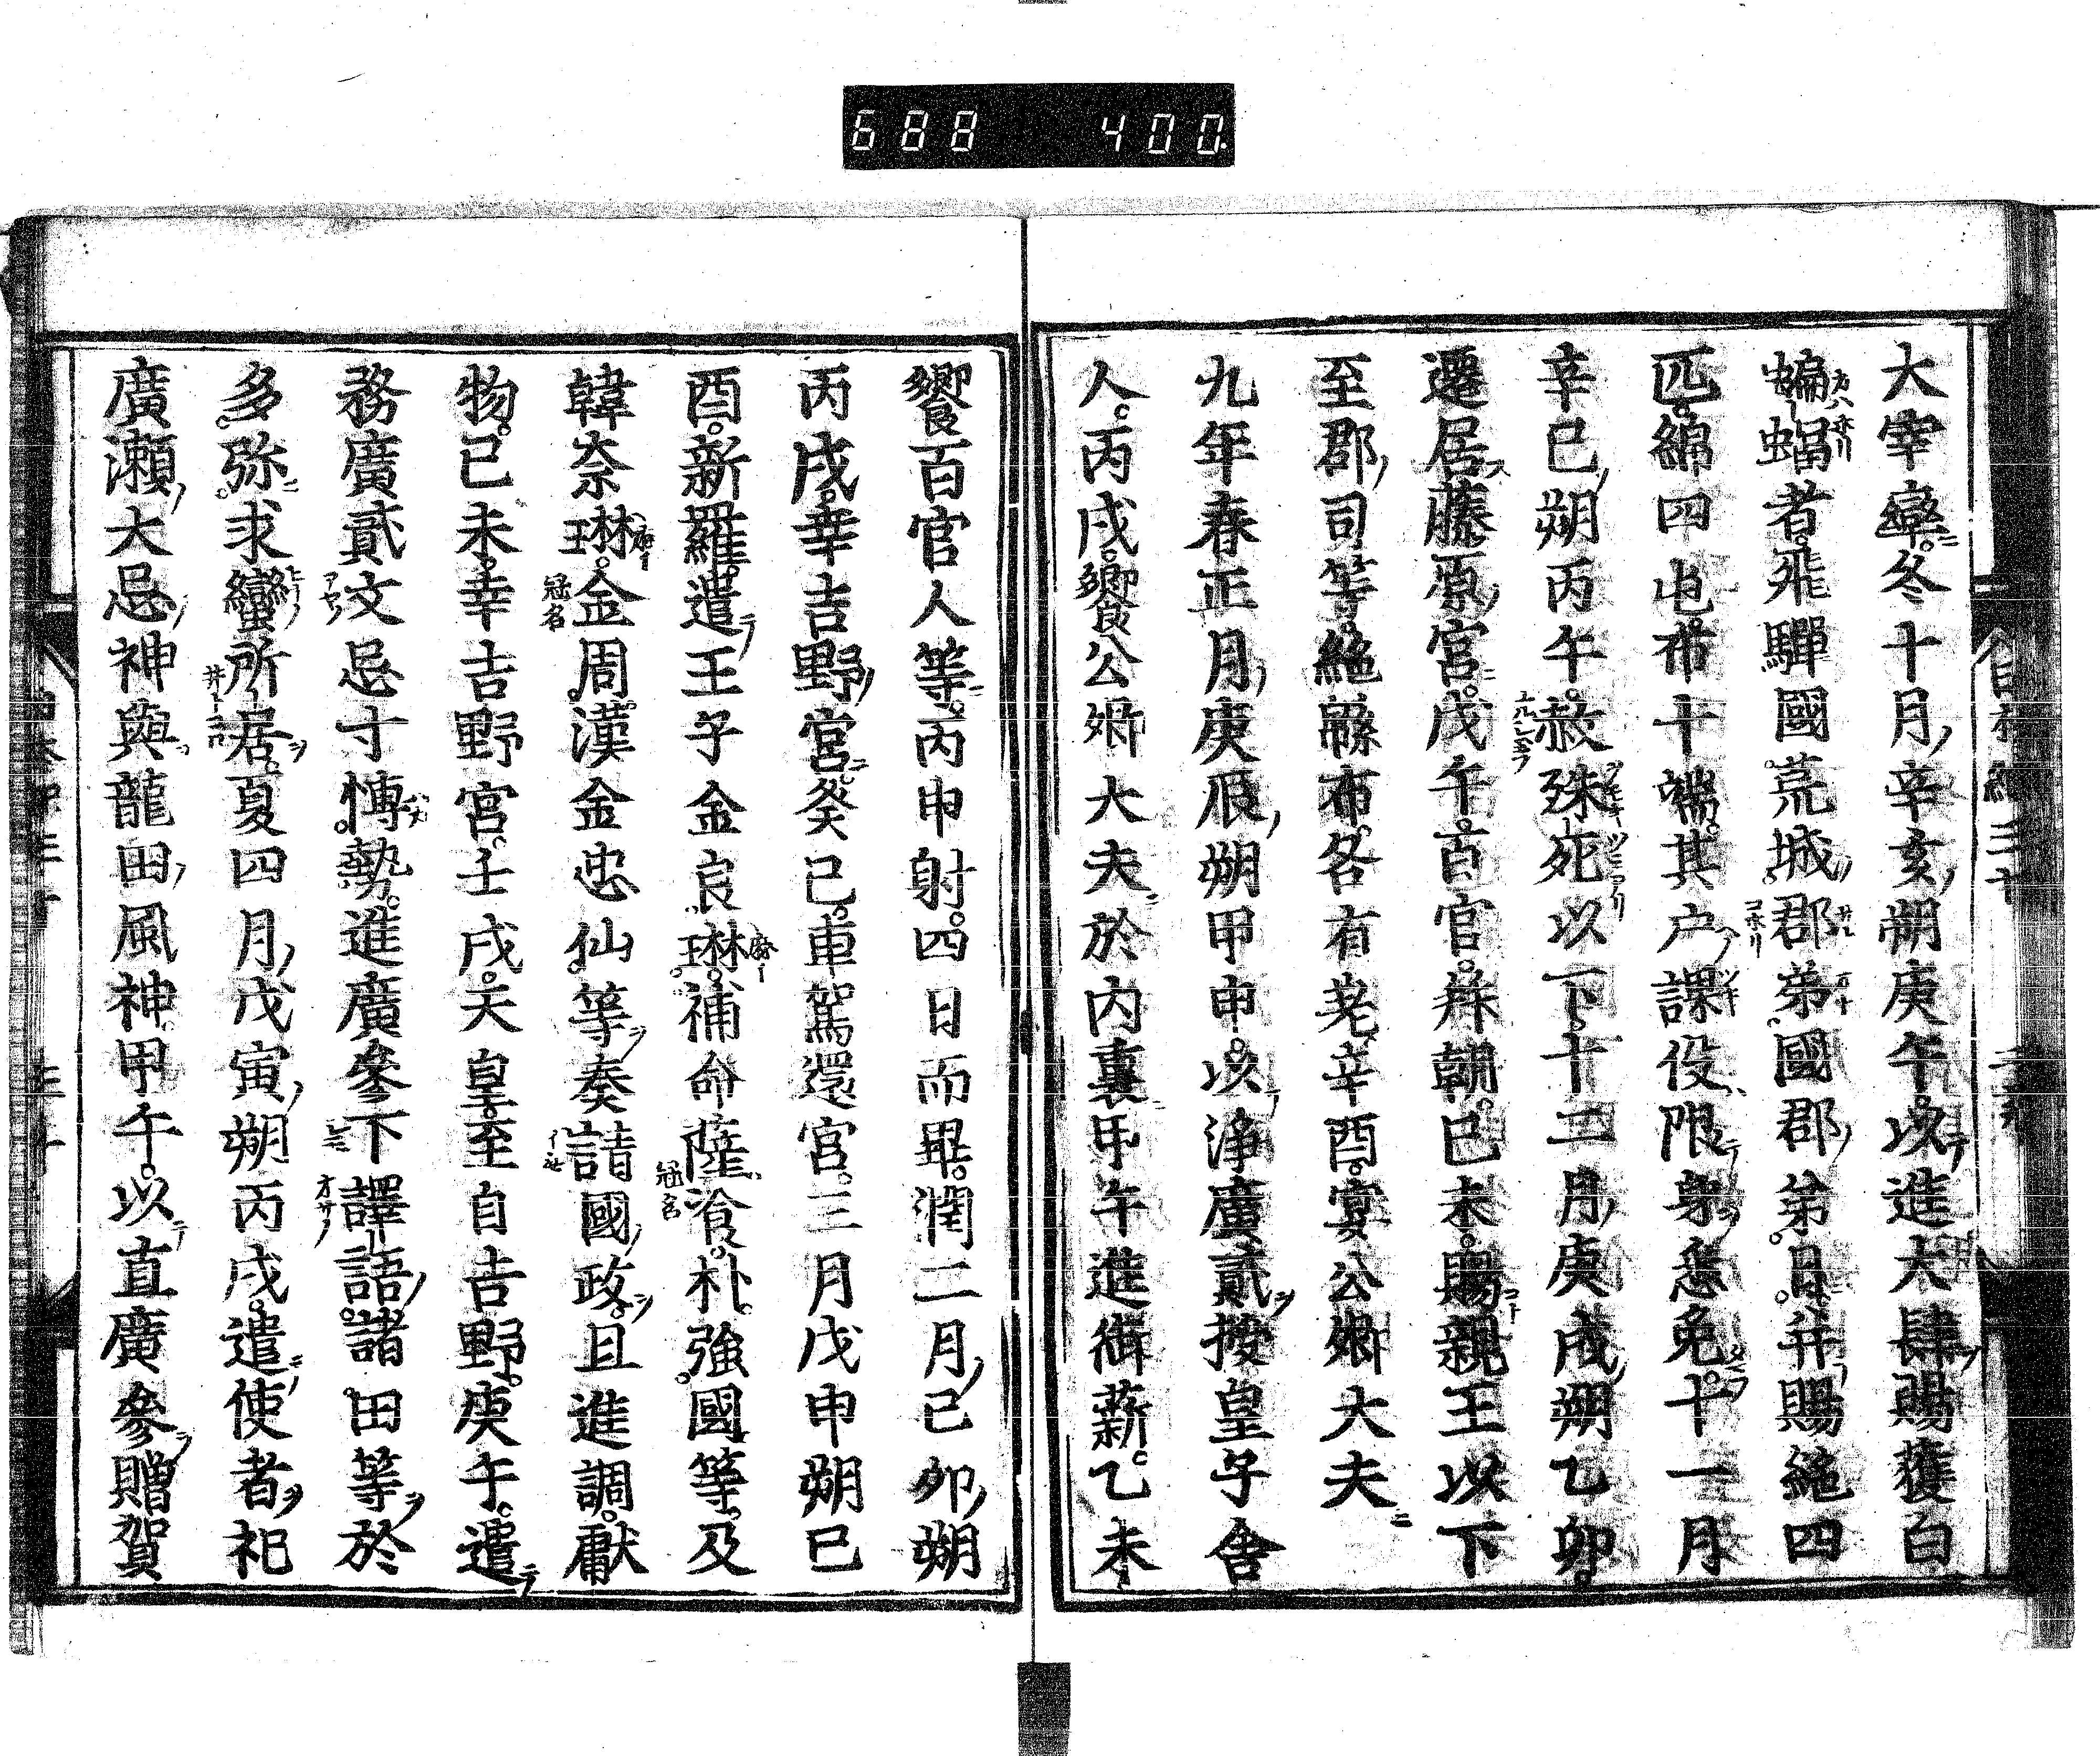 688 400
大宰率冬十月辛亥朔庚午以進大肆賜獲白
蝙蝠者飛驒國荒城郡弟國郡弟日并賜絁四
匹綿四屯布十端其户課役限身悉免十一月
辛巳朔丙午赦殊死以下十二月庚戌朔乙卯
遷居藤原宮戊午百官拜朝己未賜親王以下
至郡司等絁綿布各有差辛酉宴公卿大夫
九年春正月庚辰朔甲申以淨廣貳授皇子舎
人丙戌饗公卿大夫於内裏甲午進御薪乙未
饗百官人等丙申射四日而畢潤二月己卯朔
丙戌幸吉野宮癸巳車駕還宮三月戊申朔己
酉新羅遣王子金良琳補命薩飡朴強國等及
韓奈琳金周漢金忠仙等奏請國政且進調獻
物己未幸吉野宮壬戌天皇至自吉野庚午遣
務廣貳文忌寸博勢進廣參下譯語諸田等於
多弥求蠻所居夏四月戊寅朔丙戌遣使者祀
廣瀬大忌神與龍田風神甲午以直廣參贈賀